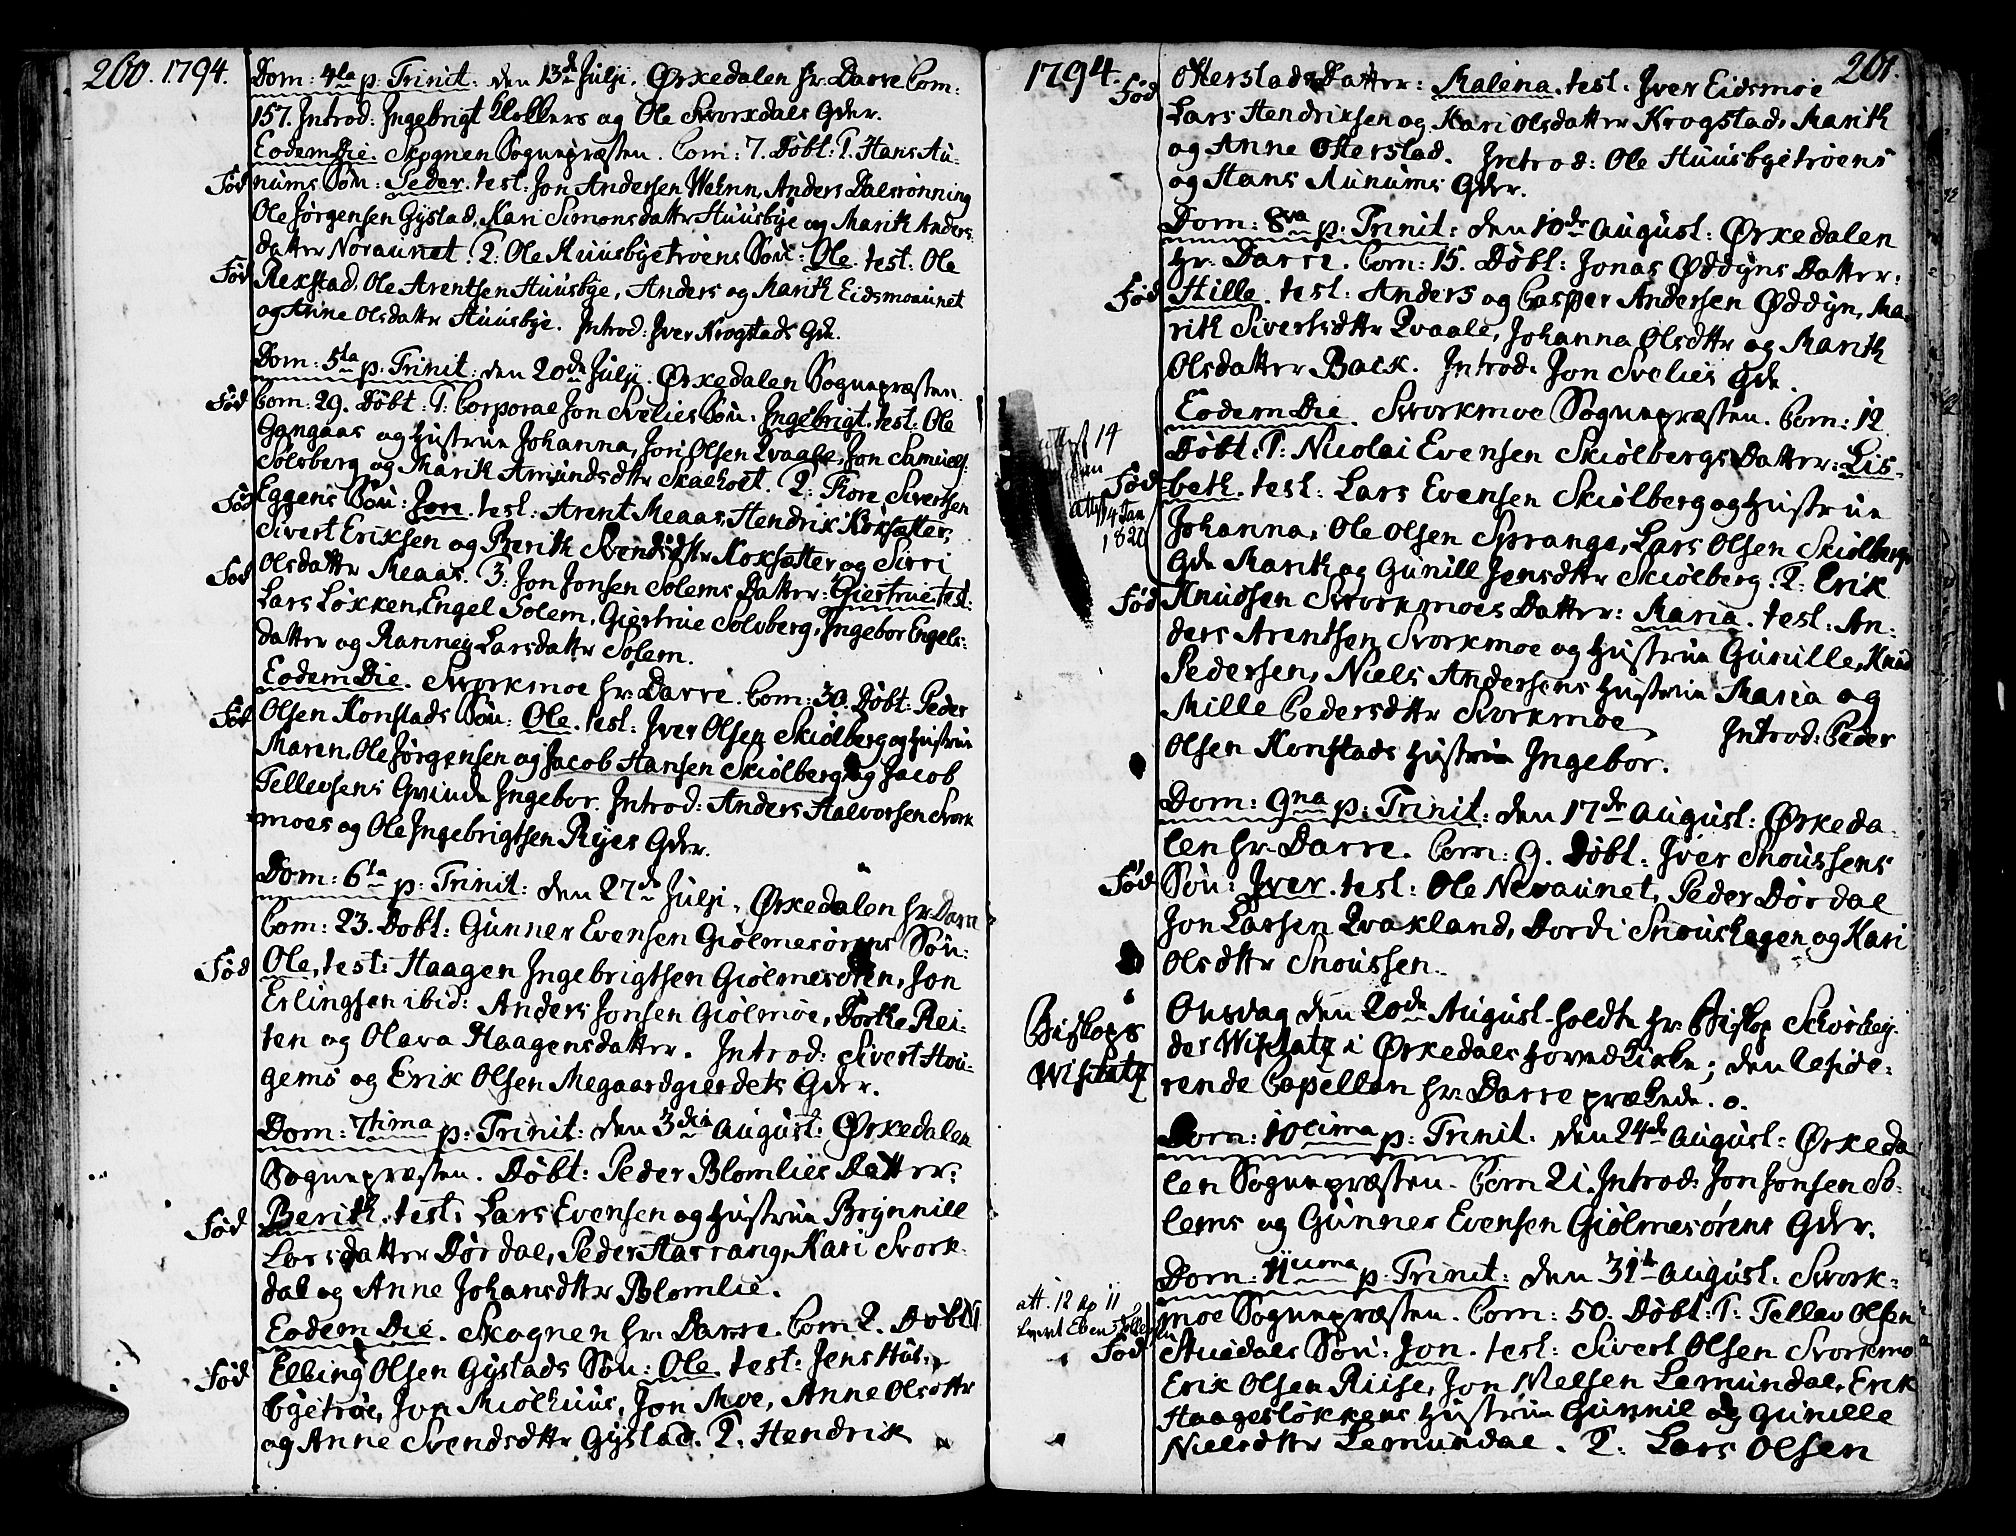 260. 1794.
Dom: 4ta p. Trinit: den 13de Julji. Ørkedalen hr. Darre Com:
157. Introd: Ingebrigt Kolbers og Ole Svorkdals Gder.
Eodem Die. Skognen Sognepræsten. Com: 7. Døbt: 1. Hans Au-
Fød nums Søn: Peder. test: Jon Andersen Anders Dalsrønning
Ole Jørgensen Gystad, Kari Simonsdattr Huusbye og Marith Anders-
datter Novaunet. 2: Ole Huusbyetrøens Søn: Ole. test: Ole
Fød Rekstad, Ole Arentsen Huusbye, Anders og Marith Eidsmoaunet
og Anne Olsdattr Huusbye. Introd: Iver Krogstads Gde.
Dom: 5ta p: Trinit: den 20de Julji. Ørkedalen Sognepræsten.
Fød Com: 29. Døbt: 1: Corporal Jon Svelies Søn. Ingebrigt. test: Ole
Gangaas og Hustrue Johanna, Jori Olsen Qvaale, Jon Samuels:
Solsberg og Marith Amundsdttr Skaelhoel. 2: Tore Sivertsen
Fød Eggens Søn: Jon. test: Arent Meaas, Hendrik Koxsætter,
Sivert Eriksen og Berith Svendsdttr Koxsætter og Sirri
Fød Olsdattr Meaas. 3: Jon Jonsen Solems Datter: Giertrue test:
Lars Løkken, Engel Solem, Giertrue Solsberg, Ingebor Engels-
datter og Ranney Larsdattr Solem.
Eodem Die. Svorkmoe hr. Darre. Com: 30. Døbt: Peder
Fød Olsen Konstads Søn: Ole. test: Iver Olsen Skiølberg og Hustrue
Maren, Ole Jørgensen og Jacob Hansen Skiølberg og Jacob
Tellevsens Qvinde Ingebor. Introd: Anders Halvorsen Svork
moes og Ole Ingebrigtsen Ryes Gder.
Dom: 6ta p: Trinit: den 27de Julji. Ørkedalen hr. Darre
Com: 23. Døbt: Gunner Evensen Giølmesørens Søn:
Fød Ole, test: Haagen Ingebrigtsen Giølmesøren, Jon
Erlingsen ibid: Anders Jonsen Giølmøe, Dorthe Rei-
ten og Olava Haagensdatter. Introd: Sivert Hou-
gems og Erik Olsen Megaardgierdets Gder.
Dom: 7tima p: Trinit: den 3die August: Ørkedalen
Sognepræsten. Døbt: Peder Blomlies Datter:
Fød Berith. test: Lars Evensen og Hustrue Brynnill
Larsdatter Dørdal, Peder Harrang, Kari Svork-
dal og Anne Johansdttr Blomlie.
Eodem Die. Skognen hr. Darre. Com 2. Døbt 1
Fød Elling Olsen Gystads Søn: Ole. test: Jens Hus-
byetrøe, Jon Miølhuus, Jon Moe, Anne Olsdttr
og Anne Svendsdttr Gystad. 2. Hendrik
1794. 261.
Fød Otterstads Datter: Malena. test. Iver Eidsmoe
Lars Hendriksen og Kari Olsdatter Krogstad, Marith
og Anne Otterstad. Introd: Ole Huusbyetrøens
og Hans Aunums Gder.
Dom: 8va p: Trinit: den 10de August: Ørkedalen
hr. Darre. Com: 15. Døbt: Jonas Øddyns Datter:
Fød Hille. test: Anders og Casper Andersen Øddyn, Ma-
rith Sivertsdttr Qvaale, Johanna Olsdttr og Marith
Olsdatter Back. Introd: Jon Svelies Gde.
Eodem Die. Svorkmoe Sognepræsten. Com: 12
Døbt: 1: Nicolai Evensen Skiølbergs Datter: Lis-
Fød beth. test: Lars Evensen Skiølberg og Hustrue
attest 14
attest 14 Jan
1820
Johanna, Ole Olsen Sprange, Lars Olsen Skiølbergs
Gde Marith og Gunill Jensdttr Skiølberg. 2: Erik
Fød Knudsen Svorkmoes Datter: Maria. test: An-
ders Arentsen Svorkmoe og Hustrue Gunille, Knud
Pedersen, Niels Andersens Hustrue Maria og
Mille Pedersdttr Svorkmoe. Introd: Peder
Olsen Konstads Hustrue Ingebor.
Dom: 9na p: Trinit: den 17de August: Ørkeda-
len hr. Darre. Com: 9. Døbt: Iver Snoussens
Fød Søn: Iver. test: Ole Nevaunet, Peder Dørdal
Jon Larsen Qvakland, Dordi Snoushagen og Kari
Olsdttr Snoussen.
Biskops
Wisitatz
Onsdag den 20de August holdte hr. Biskop Schønhey-
der Wisitatz i Ørkedals Hoved Kirke; den reside-
rende Capellan hr. Darre prækede.
Dom: 10cima p: Trinit. den 24de August: Ørkeda
len Sognepræsten. Com 21. Introd: Jon Jonsen So-
lems og Gunner Evensen Giølmesørens Gder.
Dom: 11cima p: Trinit: den 31te August. Svork-
att. 12 Ap 11
moe Sognepræsten. Com: 50. Døbt: 1: Tellev Olsen
Fød Huisdals Søn: Jon. test: Sivert Olsen Svorkmo
Erik Olsen Riise, Jon Nielsen Lemundal, Erik
Haagesløkkens Hustrue Gunnil og Gunille
Nielsdttr Lemundal. 2: Lars Olsen